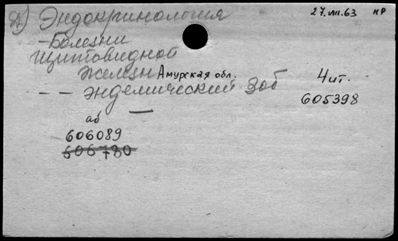 Эндокринология 27.VIII.63 нр
- Болезни
щитовидной
железы Амурская обл.
- - эндемический зоб 4 ит.
605398
аб
606089
606780